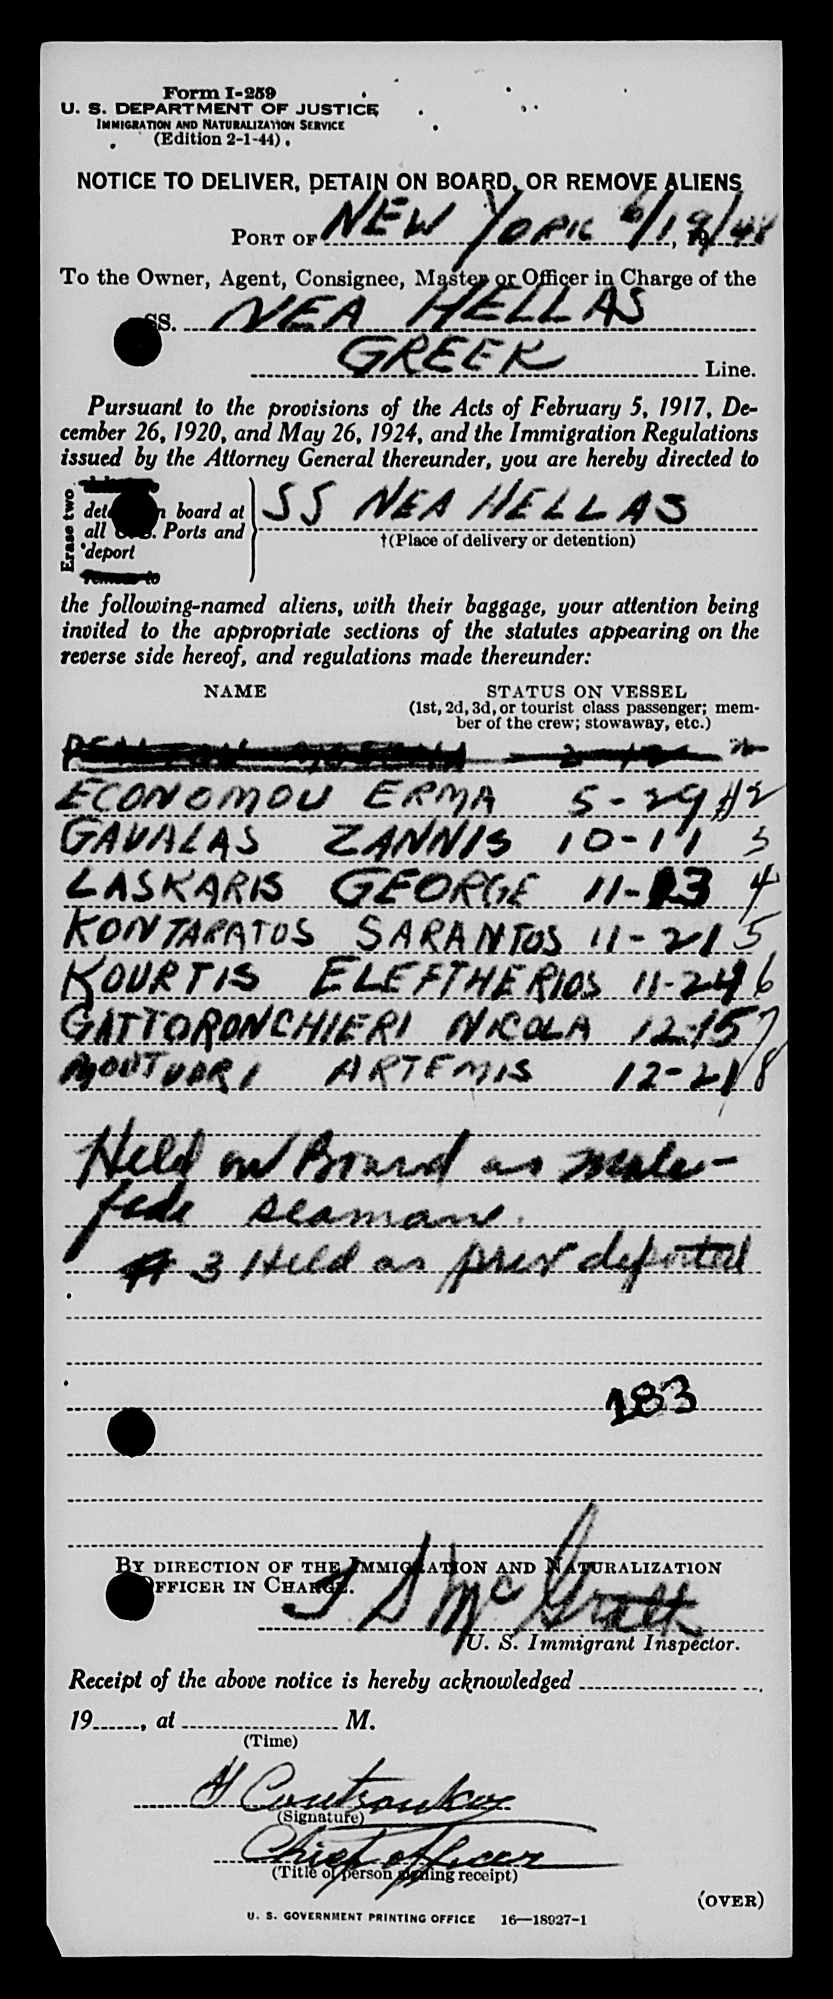 Form I-259
U. S. DEPARTMENT OF JUSTICE
IMMIGRATION AND NATURALIZATION SERVICE
(Edition 2-1-44)
NOTICE TO DELIVER, DETAIN ON BOARD, OR REMOVE ALIENS
PORT OF NEW YORK 6/19/48
To the Owner, Agent, Consignee, Master or Officer in Charge of the
SS. NEA HELLAS
GREEK Line.
Pursuant to the provisions of the Acts of February 5, 1917, De-
cember 26, 1920, and May 26, 1924, and the Immigration Regulations
issued by the Attorney General thereunder, you are hereby directed to
Erase two
board at
all Ports and
deport
SS NEA HELLAS
†(Place of delivery or detention)
the following-named aliens, with their baggage, your attention being
invited to the appropriate sections of the statutes appearing on the
reverse side hereof, and regulations made thereunder:
NAME STATUS ON VESSEL
(1st, 2d, 3d, or tourist class passenger; mem-
ber of the crew; stowaway, etc.)
ECONOMOU ERMA 5-29 #2
GAVALAS ZANNIS 10-11 3
LASKARIS GEORGE 11-13 4
KONTARATOS SARANTOS 11-21 5
KOURTIS ELEFTHERIOS 11-24 6
GATTORONCHIERI NICOLA 12-15 7
ARTEMIS 12-21 8
Held on Board as mala-
fede seaman.
# 3 Held as prev deported
183
BY DIRECTION OF THE IMMIGRATION AND NATURALIZATION
OFFICER IN CHARGE.
J S McGrath
U. S. Immigrant Inspector.
Receipt of the above notice is hereby acknowledged
19 , at M.
(Time)
(Signature)
Chief officer
(Title of person signing receipt)
(OVER)
U. S. GOVERNMENT PRINTING OFFICE 16—18927-1